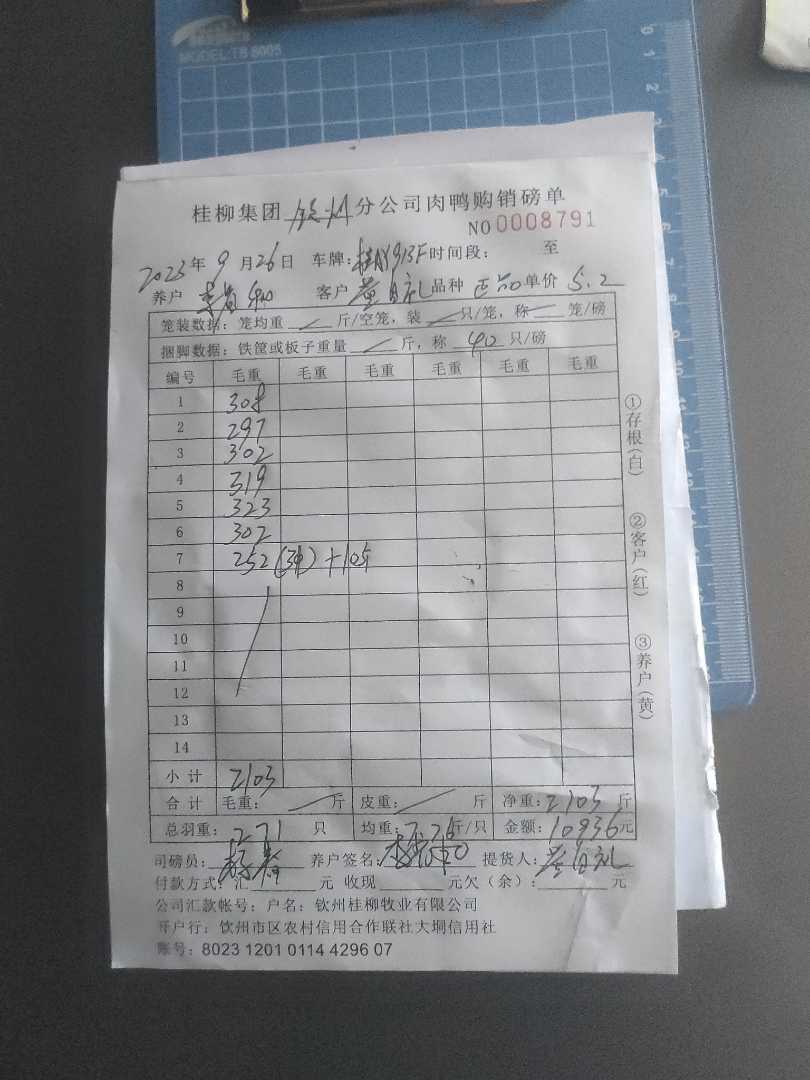 MODEL:TB 8005
桂柳集团 钦州 分公司肉鸭购销磅单
NO 0008791
2023 年 9 月 26 日 车牌: 时间段: 至
养户 客户 黄日礼 品种 正品 单价 5.2
笼装数据: 笼均重 / 斤/空笼, 装 / 只/笼, 称 / 笼/磅
捆脚数据: 铁筐或板子重量 / 斤, 称 40 只/磅
编号 毛重 毛重 毛重 毛重 毛重 毛重
1 308
2 297
3 302
4 319
5 323
6 302
7 252
8
9
10
11
12
13
14
小计 2103
合计 毛重: / 斤 皮重: / 斤 净重: 2103 斤
总羽重: 271 只 均重: 7.76 斤/只 金额: 10936 元
司磅员: 养户签名: 提货人: 黄日礼
付款方式: 汇 元 收现 元欠(余): 元
公司汇款帐号: 户名: 钦州桂柳牧业有限公司
开户行: 钦州市区农村信用合作联社大垌信用社
账号: 8023 1201 0114 4296 07
①存根(白)
②客户(红)
③养户(黄)